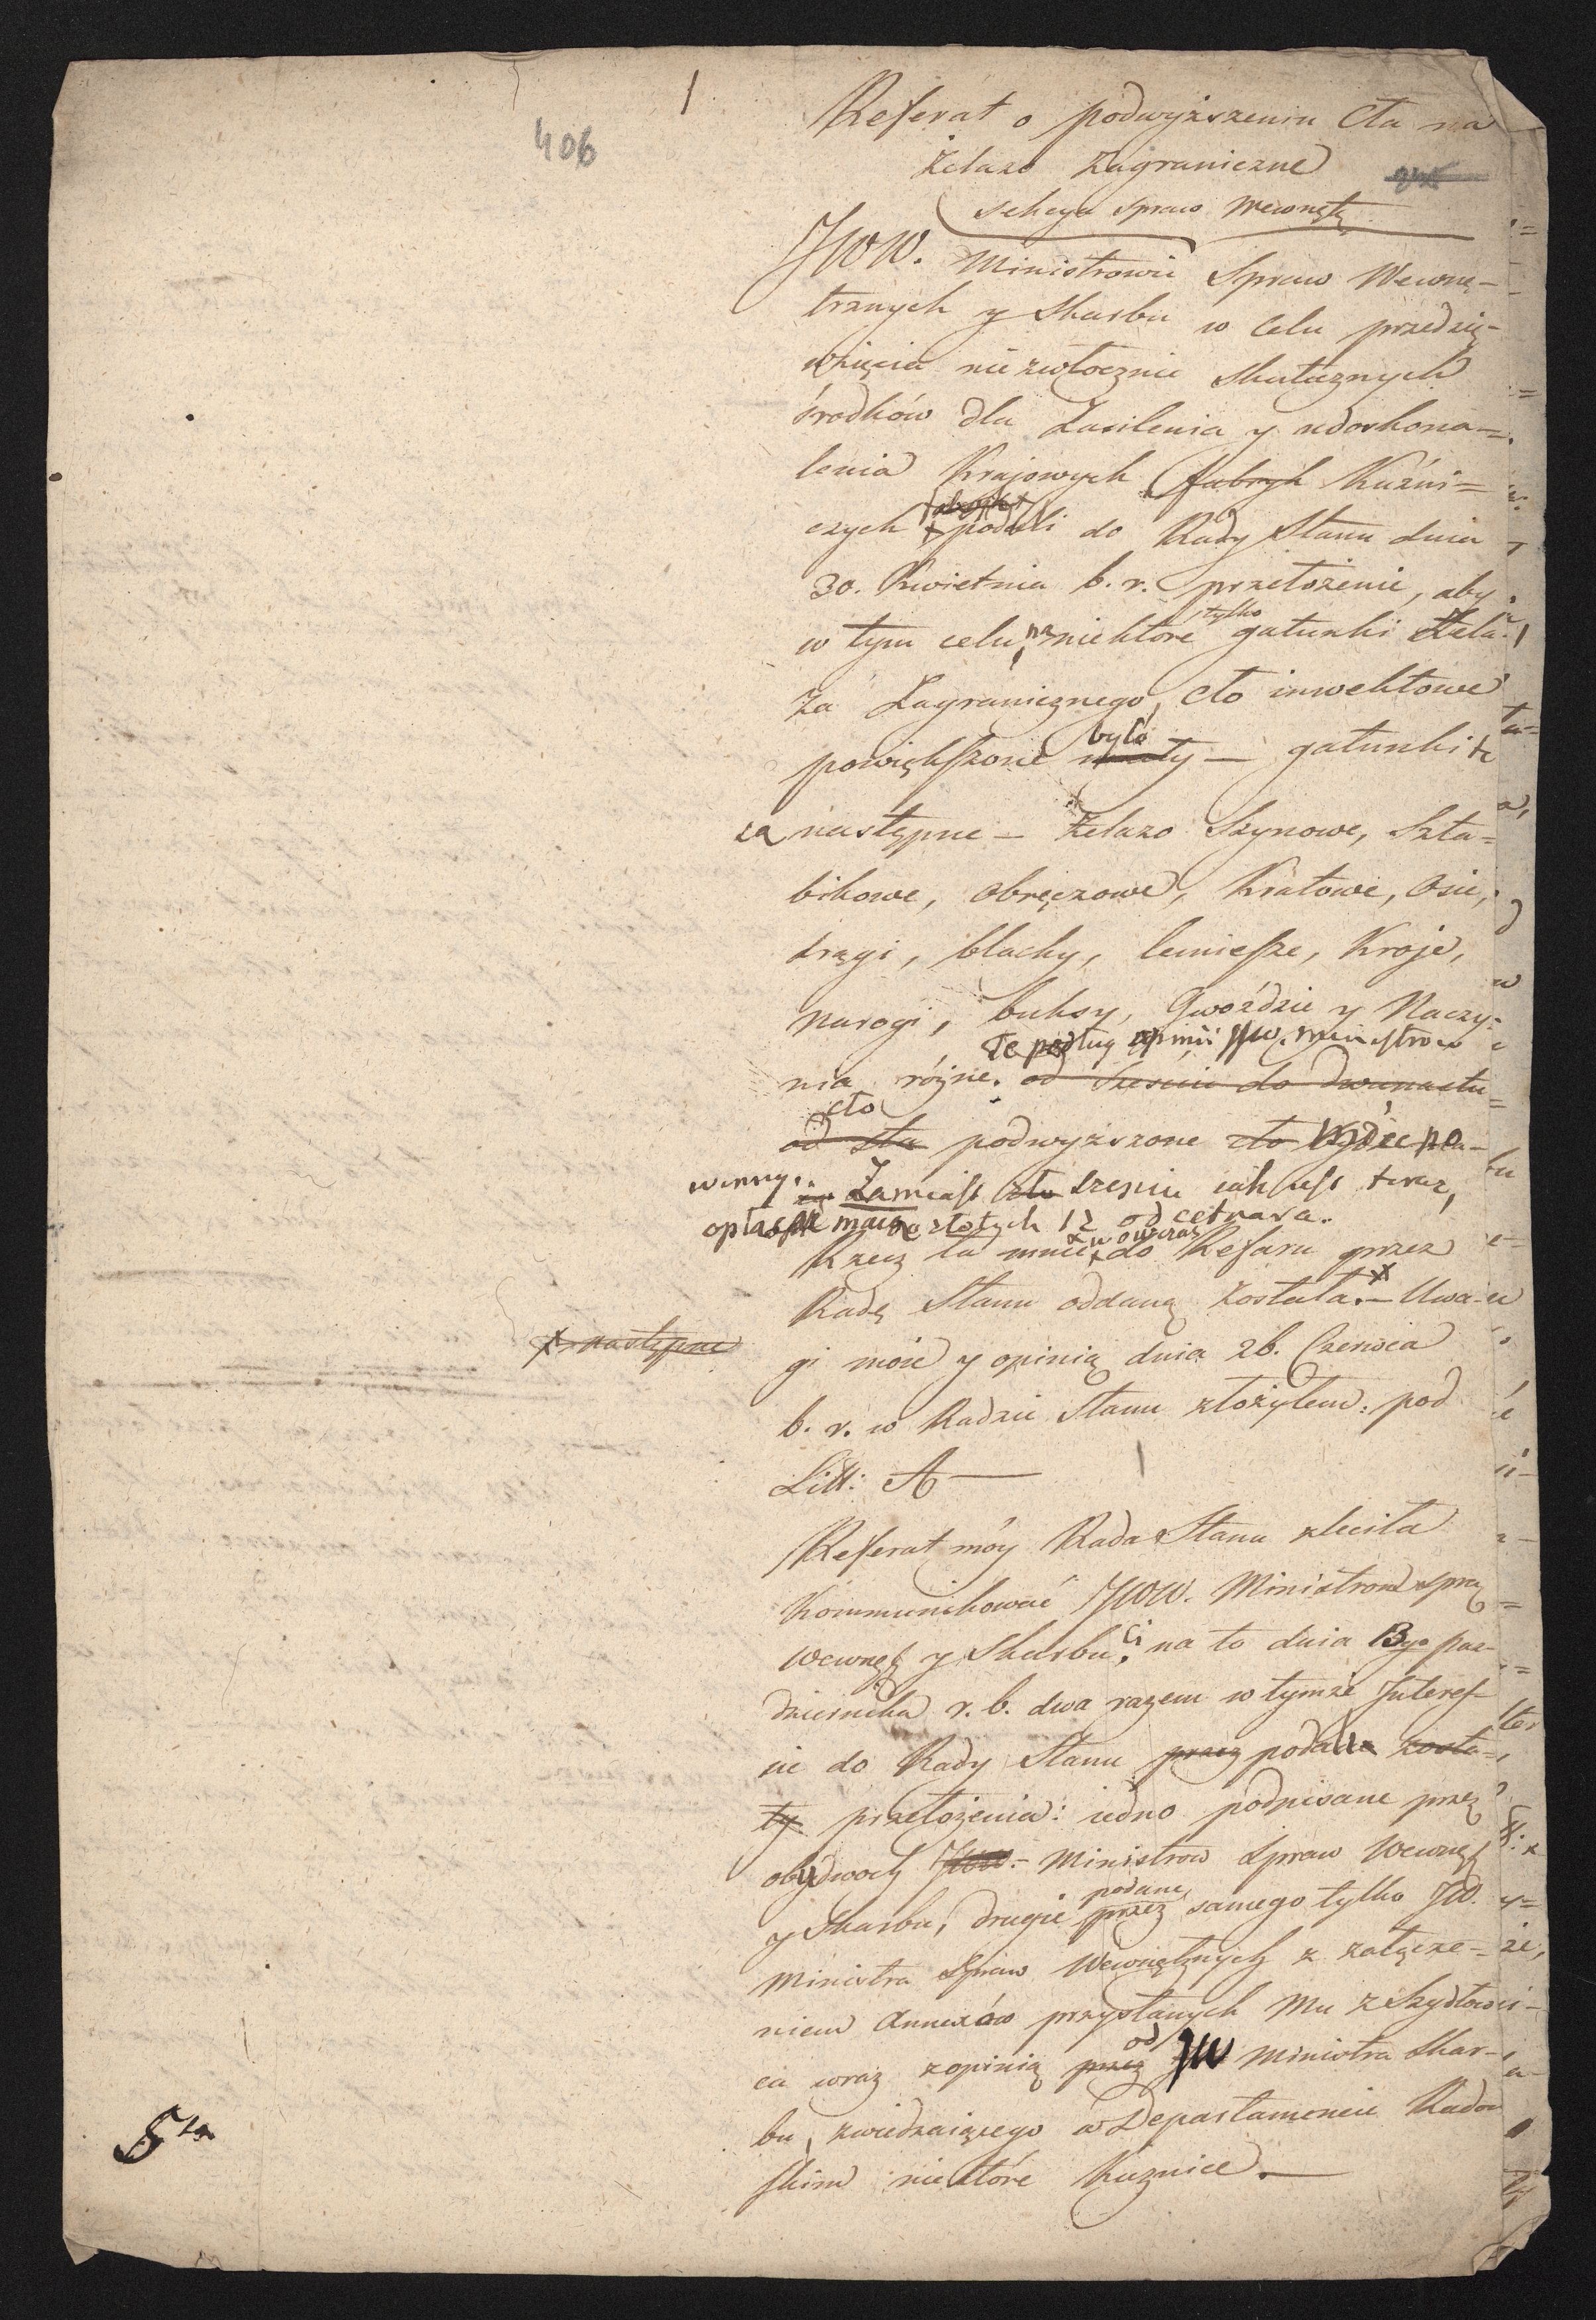 1
406
Referat o podwyższeniu Cła na
żelazo Zagraniczne
sekcya Spraw Wewnętz
JWW. Ministrowie Spraw Wewnę-
trznych y Skarbu w celu przedsię-
wzięcia nie zwłocznie skutecznych
środków dla Zasilenia y udoskona-
lenia Krajowych fabryk Kuźni=
czych podali do Rady Stanu dnia
30. Kwietnia b. r. przełożenie, aby
w tym celu, na niektóre tylko gatunki Żela-
za Zagranicznego, cło inwektowe
powiększone było — gatunki te
są następne — żelazo Szynowe, Szta=
bikowe, obręczowe, Kratowe, Osie,
drągi, blachy, lemiesze, Kroje,
narogi, buksy, Gwoździe y Naczy=
Te podług opinii JW. Ministrow
nia różne. od Sześciu do dwunastu
cło
od sta podwyższone cło bydź po-
winny. Zamiast cło sześciu iak iest teraz,
opłacać maią złotych 12 od cetnara.
Rzecz ta mnie wówczas do Referu przez
Radę Stanu oddaną została. — Uwa-
x następne
gi moie y opinią dnia 26. Czerwca
b. r. w Radzie Stanu złożyłem: pod
Litt: A —
Referat móy Rada Stanu zleciła
Kommunikować JWW. Ministrom spraw
Wewnętz y Skarbu, ci na to dnia 13go paz-
dziernika r. b. dwa razem w tymże Interes-
sie do Rady Stanu przez podali zosta-
ły przełożenia: iedno podpisane przez
obydwoch JWW. Ministrow Spraw Wewnętz
y Skarbu, drugie podane przez samego tylko JW.
Ministra Spraw Wewnętznych z załącze-
niem Annexów przysłanych Mu z Szydłow-
ca wraz z opinią przez od JW Ministra Skar-
bu, zwiedzaiącego w Departamencie Radom
skim niektóre Kuznice. —